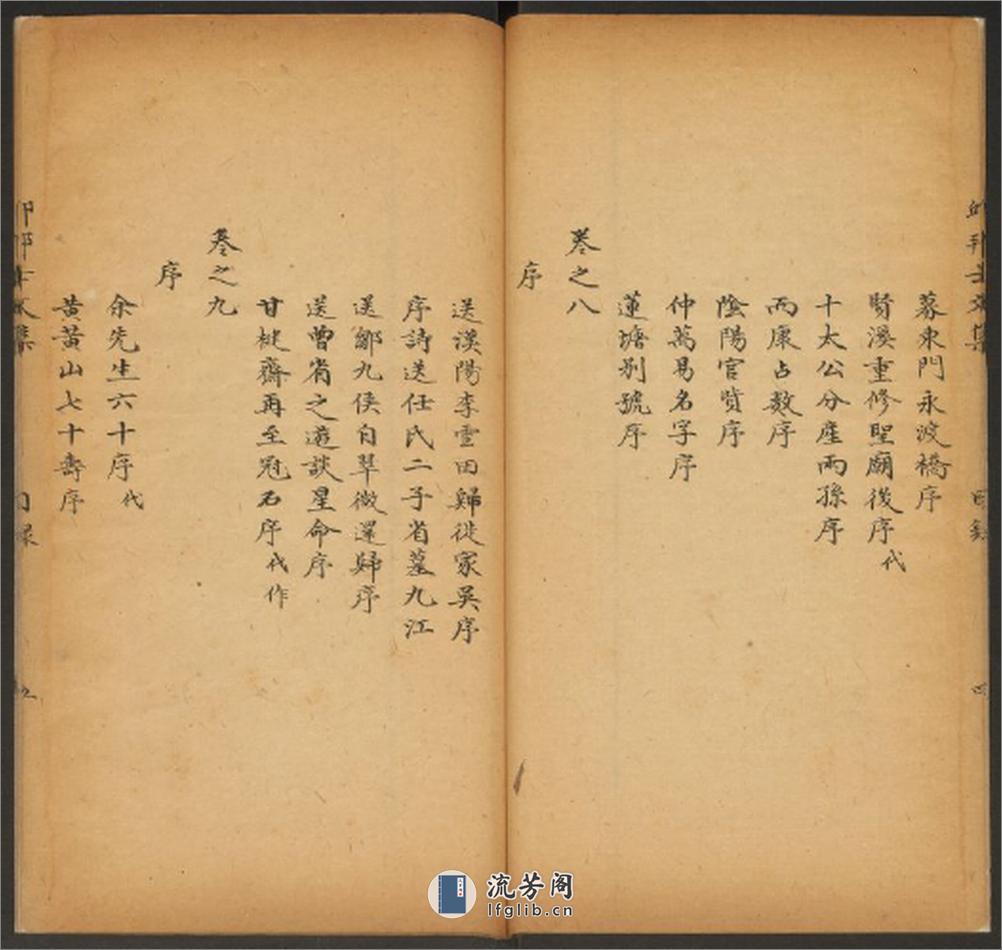 邱邦士文集 目錄 四
募東門永渡橋序
賢溪重修聖廟後序代
十太公分産兩孫序
丙康占數序
陰陽官贊序
仲萬易名字序
蓮塘別號序
卷之八
序
送漢陽李雲田歸從家吳序
序詩送任氏二子省墓九江
送鄒九侯自翠微還歸序
送曾省之遊談星命序
甘楗齋再至冠石序代作
卷之九
序
余先生六十序代
黄黄山七十壽序
文集 目錄
流芳阁
lfglib.cn